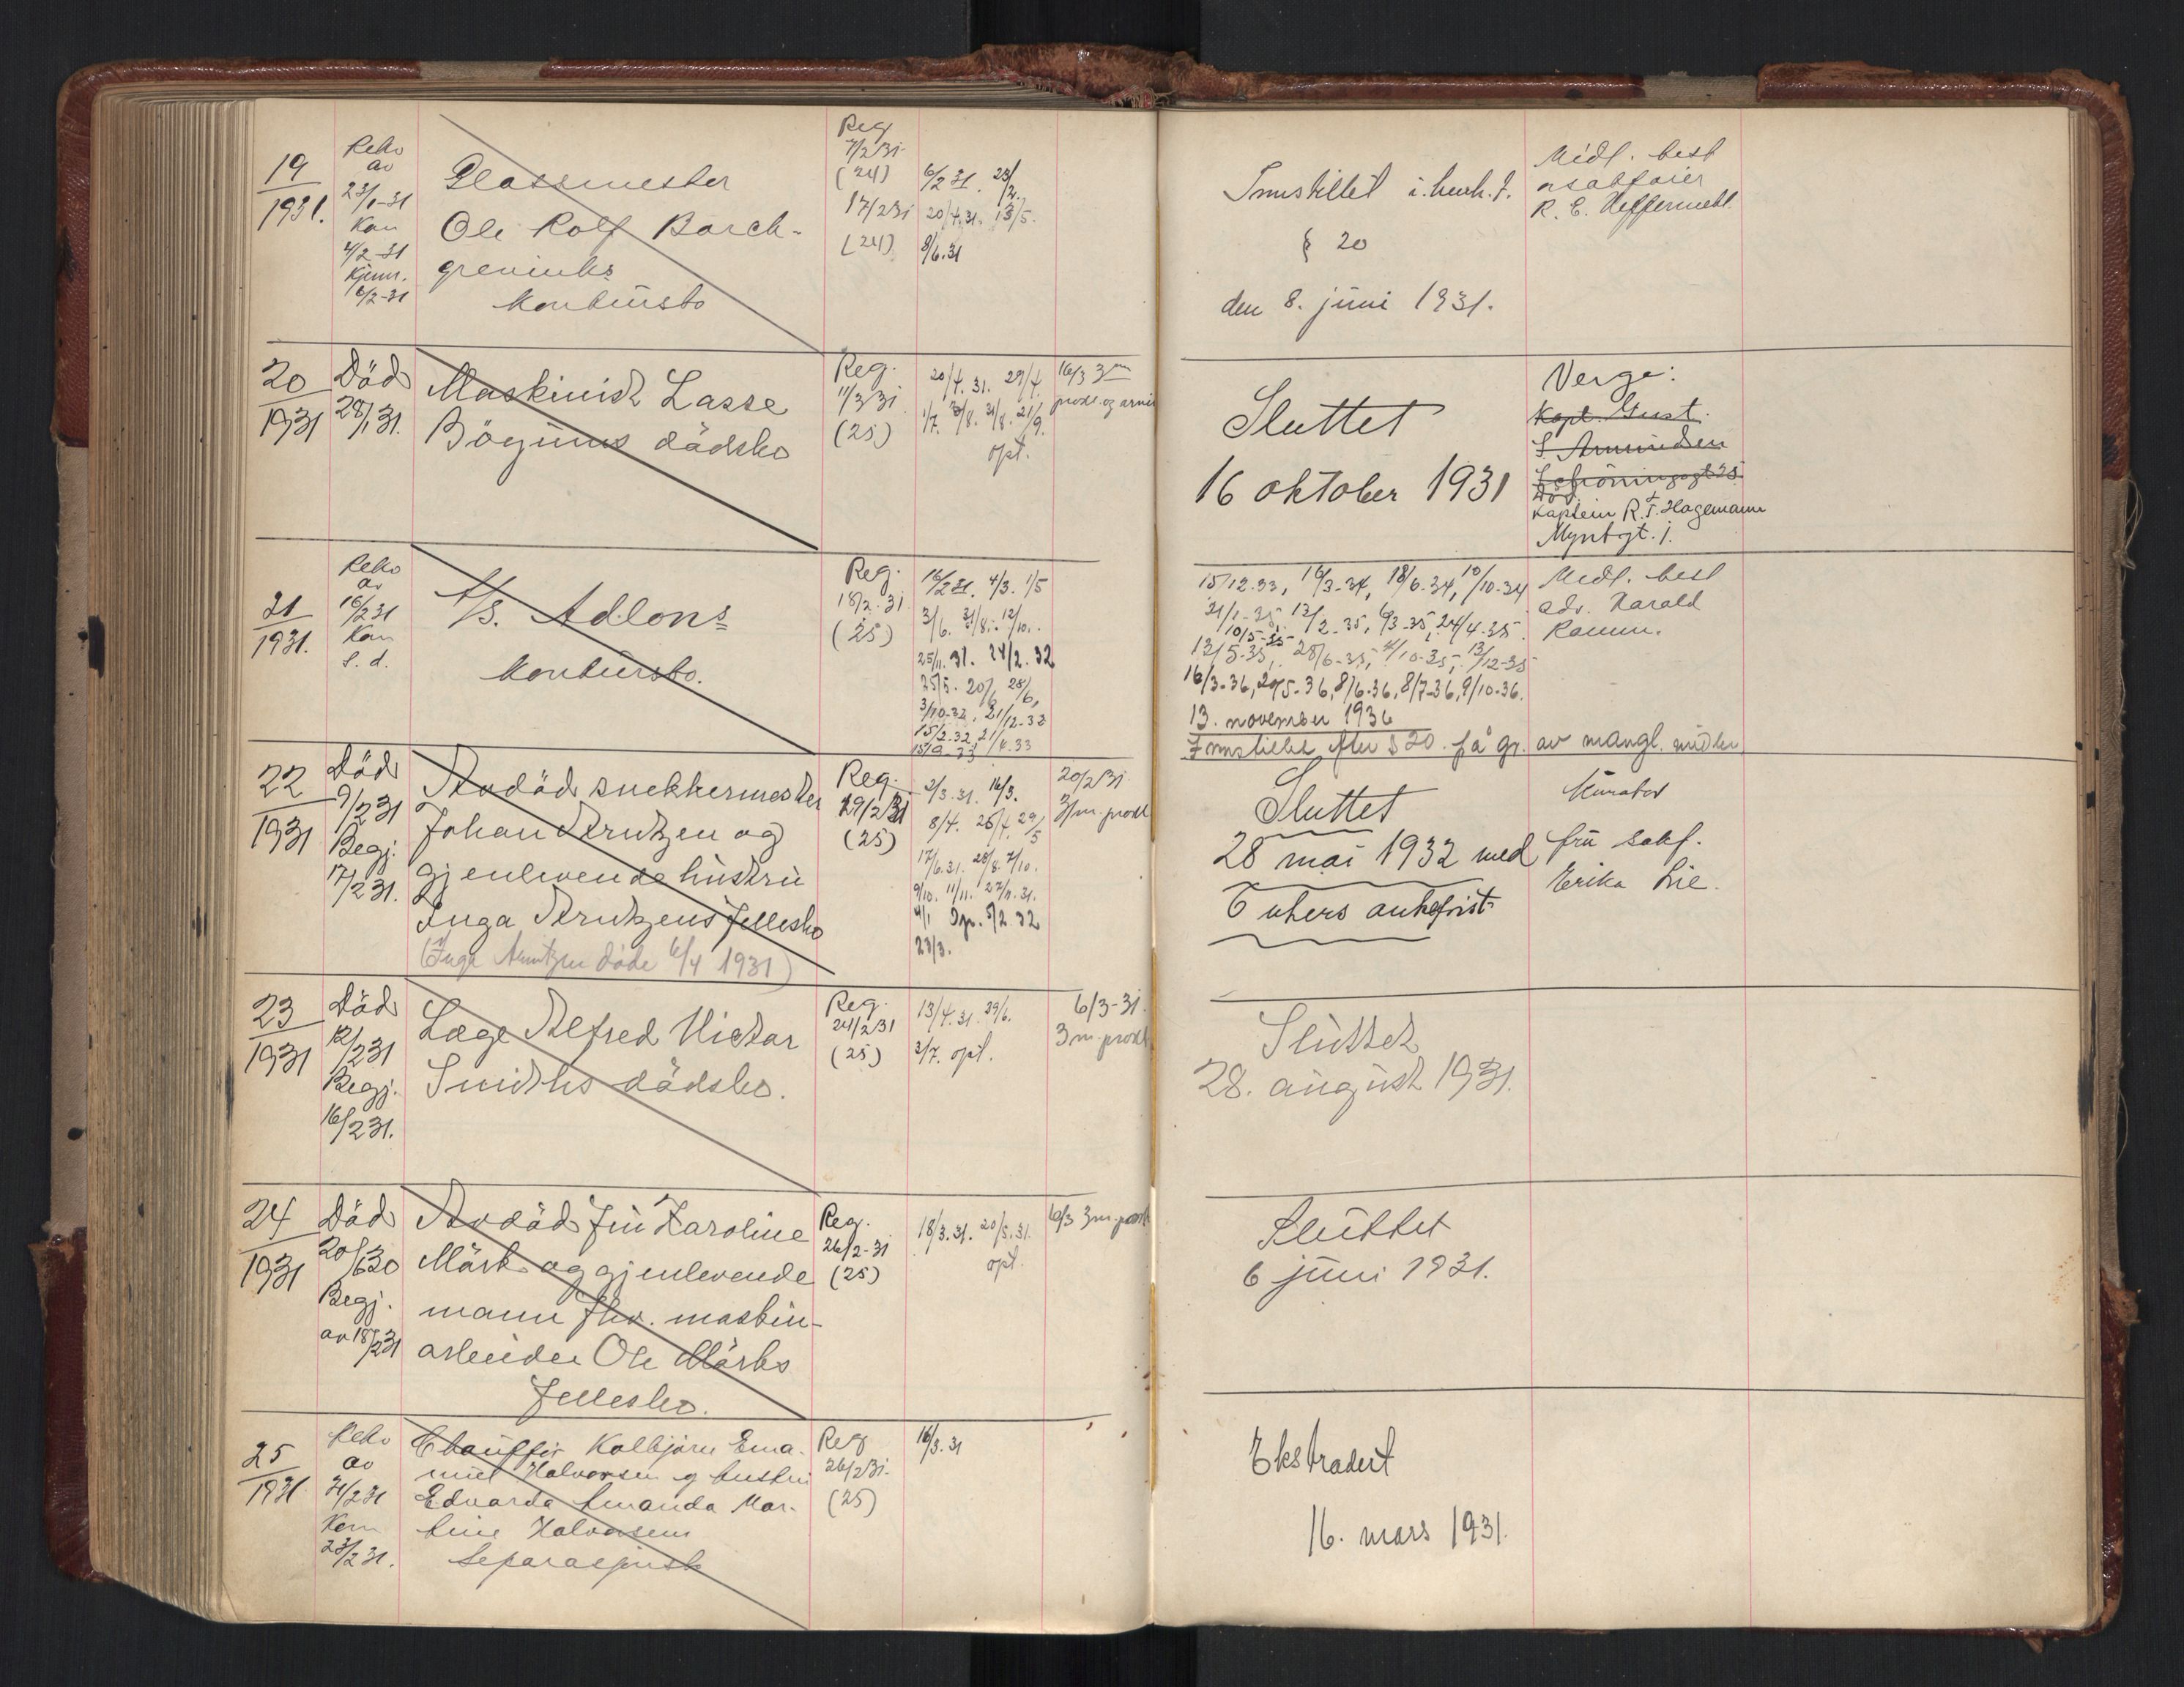 19
1931.
Reko
av
23/1-31
Kon
4/2-31
Kjenn.
6/2-31
Glassmester
Ole Rolf Borch-
grevinks
konkursbo
Reg
7/2 31
(24)
17/2 31
(24)
6/2 31. 23/2.
20/4.31. 13/5.
8/6.31
Innstillet i.henh.t.
§ 20
den 8. juni 1931.
Midl. best
o.r.sakfører
R. E. Heffermehl
20
1931
Död
28/1 31.
Maskinist Lasse
Bögums dödsbo
Reg.
11/3 31
(25)
20/4.31. 29/4
1/7. 31/8. 21/9.
opt.
16/3 3 m
prokl. og arvin
Sluttet
16 oktober 1931
Verge:
Kapt. Gust.
S Amundsen
Schöningsgt 25
Död
Kaptein R. T. Hagemann
Myntgt. 1.
21
1931.
Reko
av
16/2 31
Kon
s. d.
A/S. Adlons
konkursbo.
Reg.
18/2.31
(25)
16/2 31. 4/3. 1/5
3/6. 31/8. 12/10.
25/11. 31. 24/2. 32
25/5. 20/6, 28/6,
3/10-32, 21/12-32
15/2.32, 21/4.33
15/9-33
15/12.33, 16/3-34, 18/6.34, 10/10-34
21/1-35, 12/2-35, 6/3-35, 24/4-35.
10/5-35
13/5-35, 28/6-35, 4/10-35, 13/12-35
16/3-36, 29/5-36, 8/6-36, 8/7-36, 9/10-36.
13. november 1936
Innstillet efter § 20. på gr. av mangl. midler
Midl. best
adv. Harald
Ramm.
22
1931
Död
9/2 31
Begj.
17/2 31.
Avdöd snekkermester
Johan Arntzen og
gjenlevende hustru
Inga Arntzens fellesbo
(Inga Arntzen døde 6/4 1931)
Reg.
19/2 31
(25)
2/3.31. 16/3.
8/4. 25/4. 29/5
17/6.31. 28/8. 7/10.
9/10. 11/11. 27/11.31.
4/1 Op. 5/2 32
23/3.
20/2 31
3/m. prokl
Sluttet
28 mai 1932 med
6 ukers ankefrist
Kurator
fru sakf.
Erika Lie.
23
1931
Död
12/2 31
Begj.
16/2 31.
Læge Alfred Victor
Smiths dödsbo.
Reg.
24/2 31
(25)
13/4.31. 29/6.
3/7. opt.
6/3-31.
3 m. prokl
Sluttet
28. august 1931.
24
1931
Död
20/6 30
Begj.
av 18/2 31
Avdöd fru Karoline
Mörk og gjenlevende
mann fhv. maskin-
arbeider Ole Mörks
fellesbo.
Reg.
26/2-31
(25)
18/3.31. 20/5.31.
opt.
10/3 3m. prokl
Sluttet
6 juni 1931.
25
1931
Reko
av
21/2 31
Kom
23/2 31.
Chauffør Kolbjørn Ema-
nuel Halvorsen og hustru
Edvarda Amanda Mar-
tine Halvorsens
Separasjonsbo
Reg
26/2 31.
(25)
16/3.31
Ekstradert
16. mars 1931.